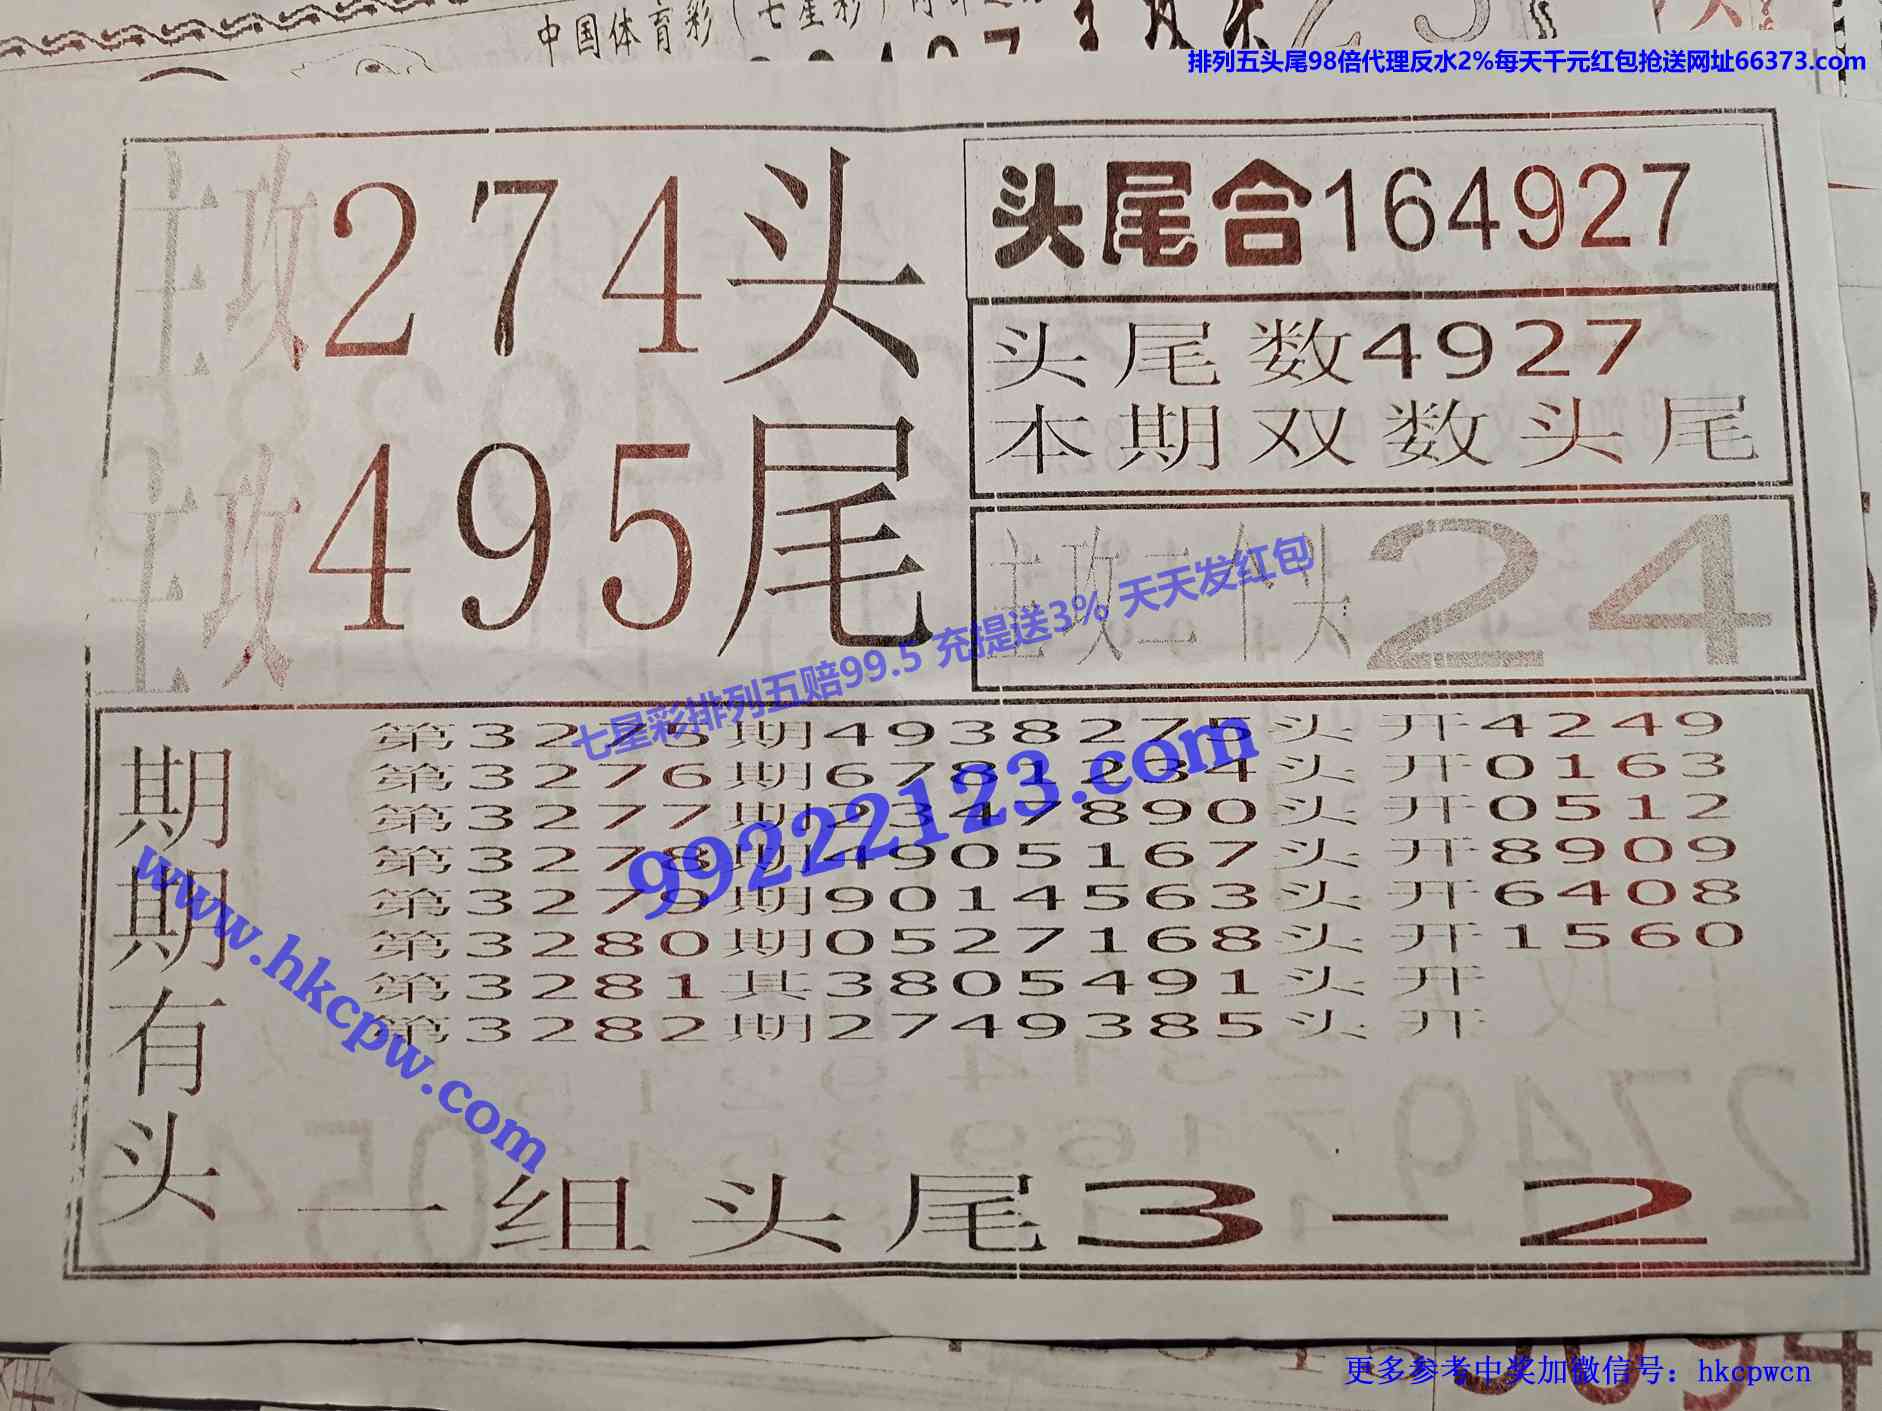 中国体育彩(七星彩)
排列五头尾98倍代理反水2%每天千元红包抢送网址66373.com
主攻274头
主攻495尾
头尾合164927
头尾数4927
本期双数头尾
主攻二个头24
七星彩排列五赔99.5 充提送3% 天天发红包
99222123.com
www.hkcpw.com
期期有头
第3275期4938275头开4249
第3276期6781234头开0163
第3277期2347890头开0512
第3278期4905167头开8909
第3279期9014563头开6408
第3280期0527168头开1560
第3281其3805491头开
第3282期2749385头开
一组头尾3－2
更多参考中奖加微信号：hkcpwcn